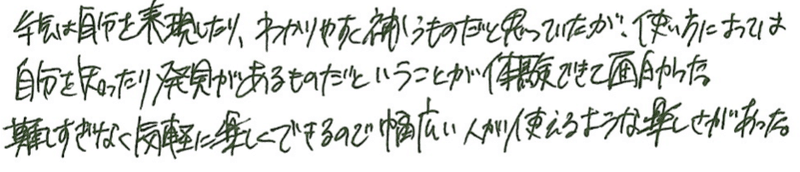 年表は自分を表現したり、わかりやすく補うものだと思っていたが、使い方によっては
自分を知ったり発見があるものだということが体験できて面白かった。
難しすぎなく気軽に楽しくできるので幅広い人が使えるような楽しさがあった。